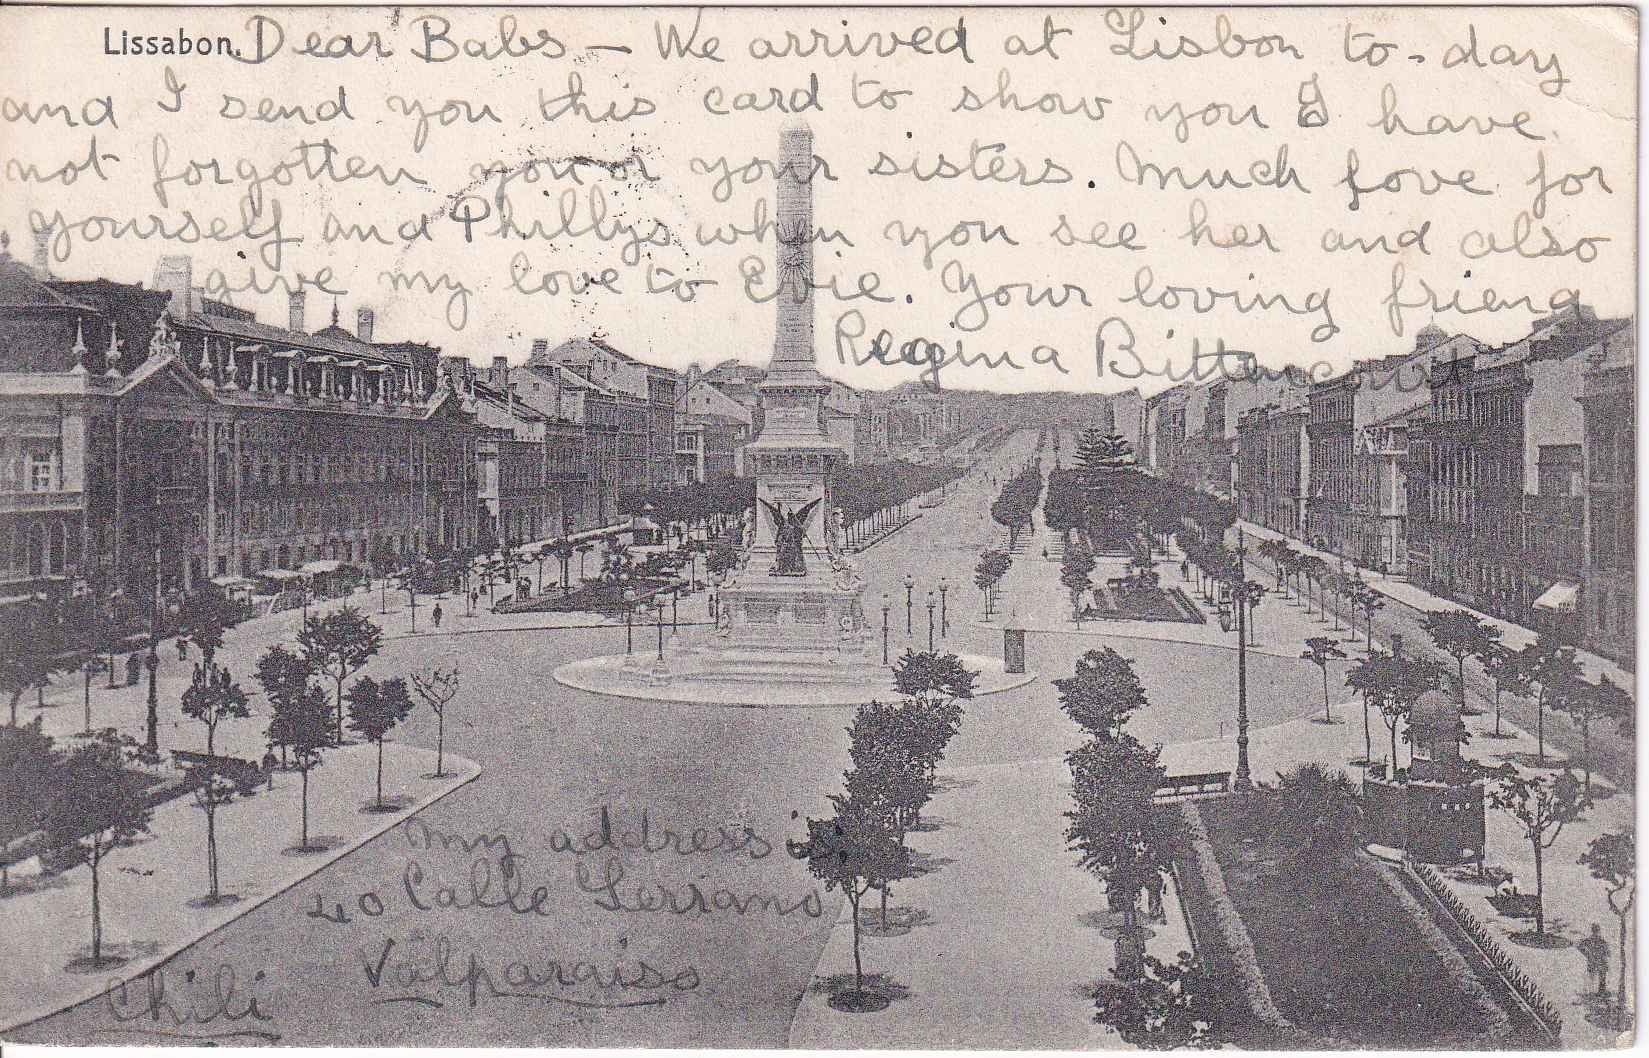 Lissabon. Dear Babs – We arrived at Lisbon to-day
and I send you this card to show you I have
not forgotten you or your sisters. Much love for
yourself and Phillys when you see her and also
give my love to Evie. Your loving friend
Regina Bittencourt
My address is
40 Calle Serrano
Valparaiso
Chili